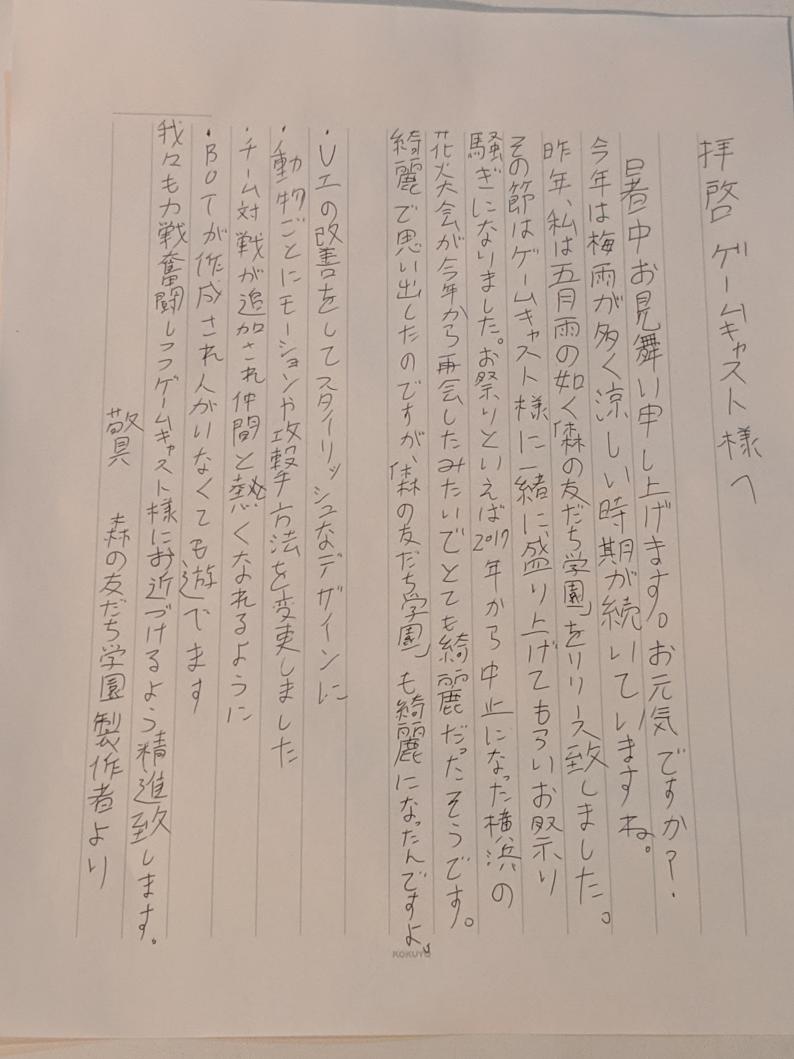 拝啓 ゲームキャスト様へ
暑中お見舞い申し上げます。お元気ですか?
今年は梅雨が多く涼しい時期が続いていますね。
昨年、私は五月雨の如く「森の友だち学園」をリリース致しました。
その節はゲームキャスト様に一緒に盛り上げてもらいお祭り
騒ぎになりました。お祭りといえば2017年から中止になった横浜の
花火大会が今年から再会したみたいでとても綺麗だったそうです。
綺麗で思い出したのですが、「森の友だち学園」も綺麗になったんですよ。
・UIの改善をしてスタイリッシュなデザインに
・動物ごとにモーションや攻撃方法を変更しました
・チーム対戦が追加され仲間と熱くなれるように
・BOTが作成され人がいなくても遊でます
我々も力戦奮闘しつつゲームキャスト様にお近づけるよう精進致します。
敬具 森の友だち学園製作者より
KOKUYO